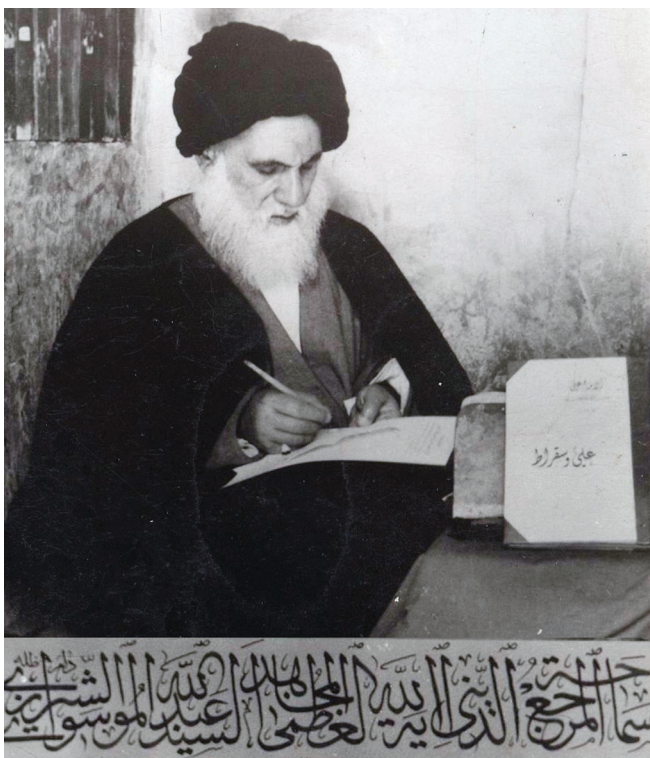 الامام علي
علي وسقراط
سماحة المرجع الديني آية الله العظمى المجاهد السيد عبدالله الموسوي الشيرازي دام ظله